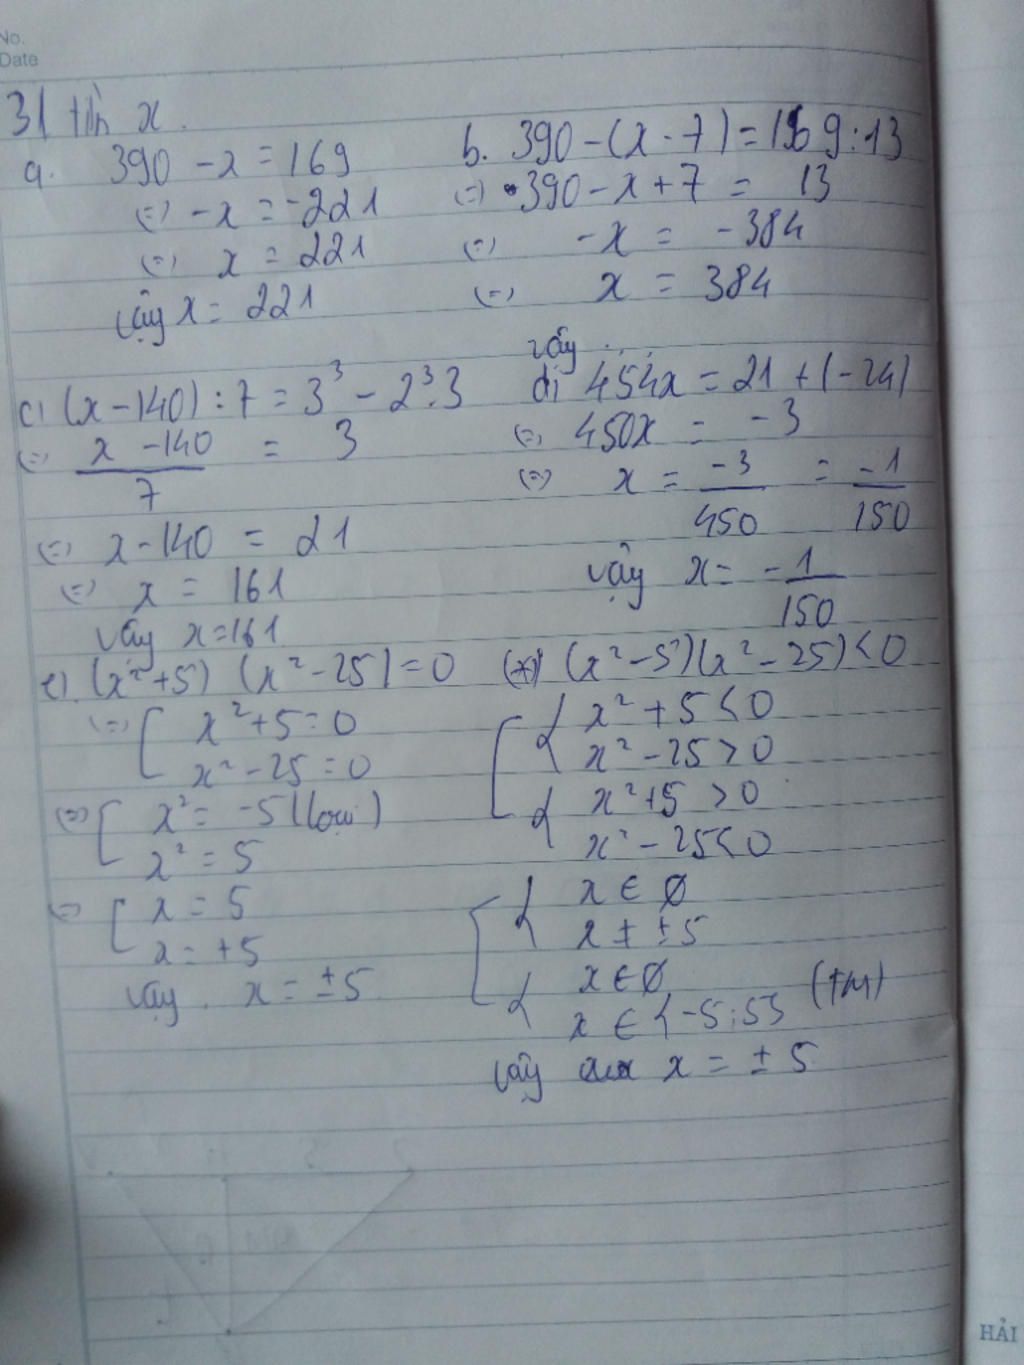 No.
Date
3) tìm x.
a. 390 - x = 169
(=) -x = -221
(=) x = 221
vậy x = 221
b. 390 - (x - 7) = 169 : 13
(=) 390 - x + 7 = 13
(=) -x = -384
(=) x = 384
vậy ...
c) (x - 140) : 7 = 3³ - 2³.3
(=) \frac{x - 140}{7} = 3
(=) x - 140 = 21
(=) x = 161
vậy x = 161
d) 454x = 21 + (-24)
(=) 450x = -3
(=) x = \frac{-3}{450} = \frac{-1}{150}
vậy x = -\frac{1}{150}
e) (x² + 5) (x² - 25) = 0
(=) [ x² + 5 = 0
x² - 25 = 0
(=) [ x² = -5 (loại)
x² = 5
(=) [ x = 5
x = +5
vậy. x = ±5
(*) (x² - 5)(x² - 25) < 0
[ { x² + 5 < 0
x² - 25 > 0
{ x² + 5 > 0
x² - 25 < 0
[ { x ∈ Ø
x ± ±5
{ x ∈ Ø
x ∈ {-5; 5} (tm)
vậy x = ± 5
HẢI